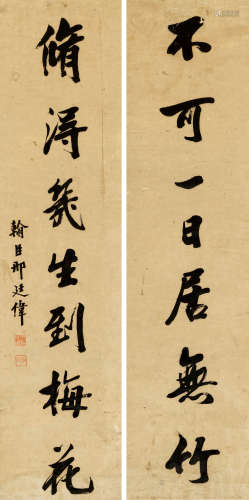 不可一日居無竹
脩得幾生到梅花
翰臣那廷偉